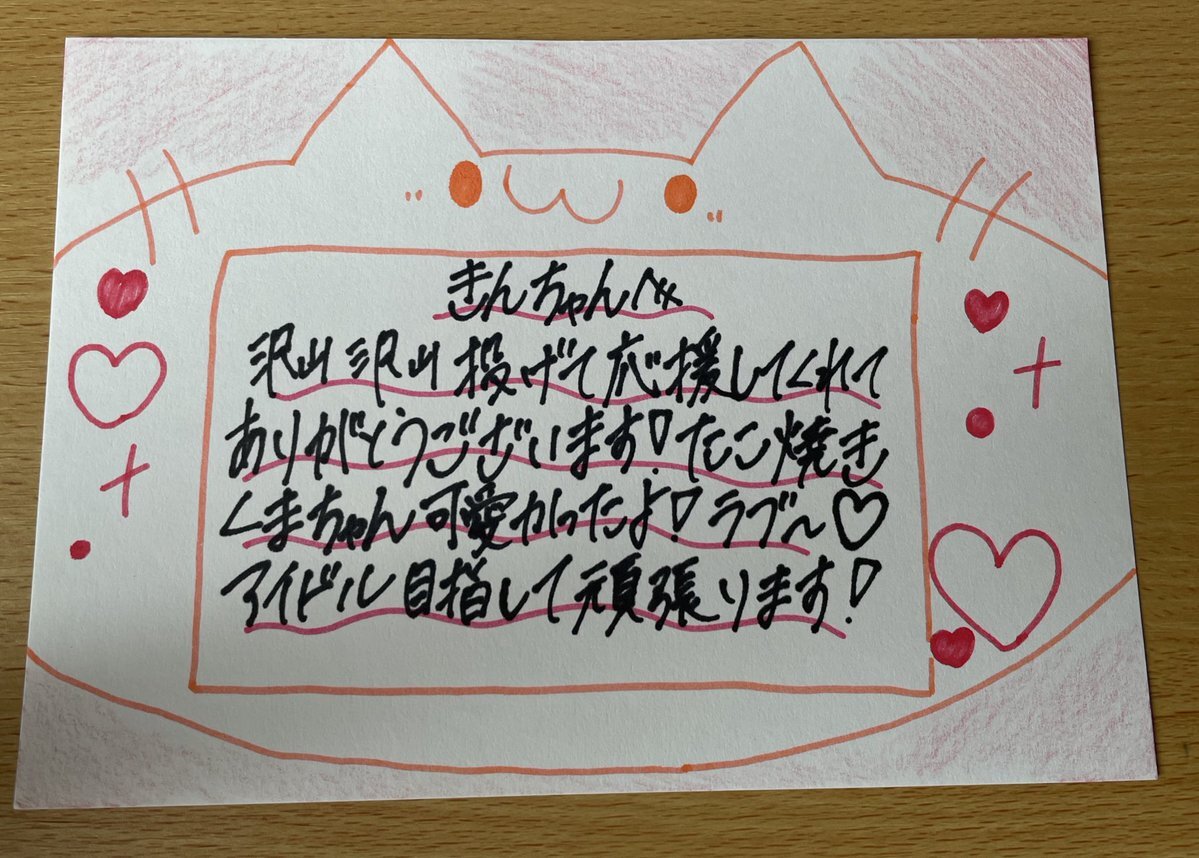 きんちゃんへ
沢山沢山投げて応援してくれて
ありがとうございます!たこ焼き
くまちゃん可愛かったよ!ラブ〜♡
アイドル目指して頑張ります!